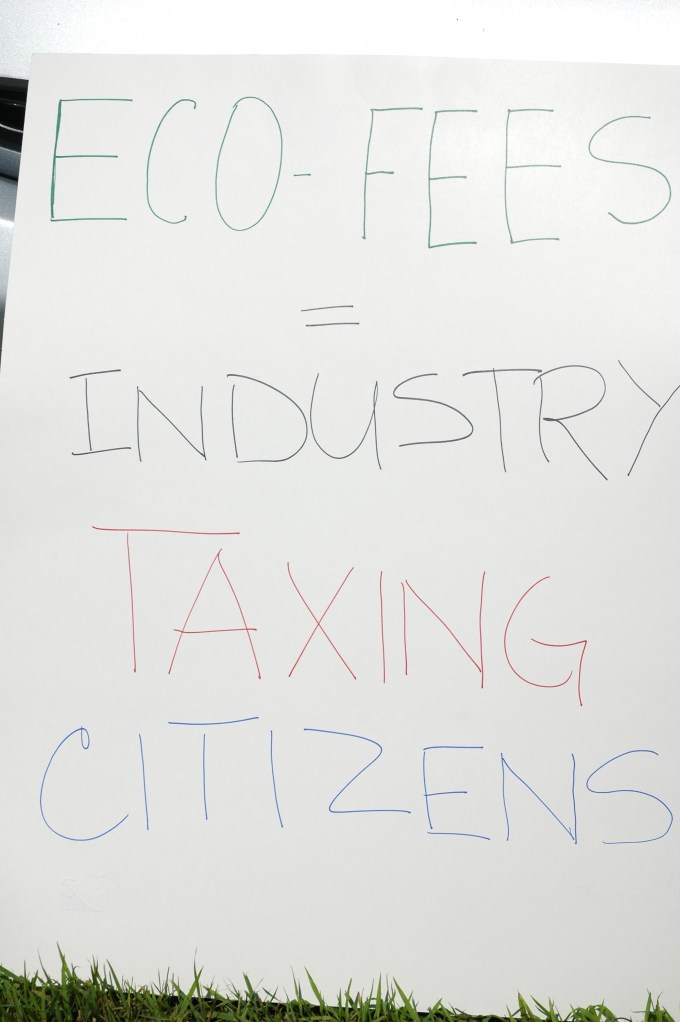 ECO-FEES
=
INDUSTRY
TAXING
CITIZENS